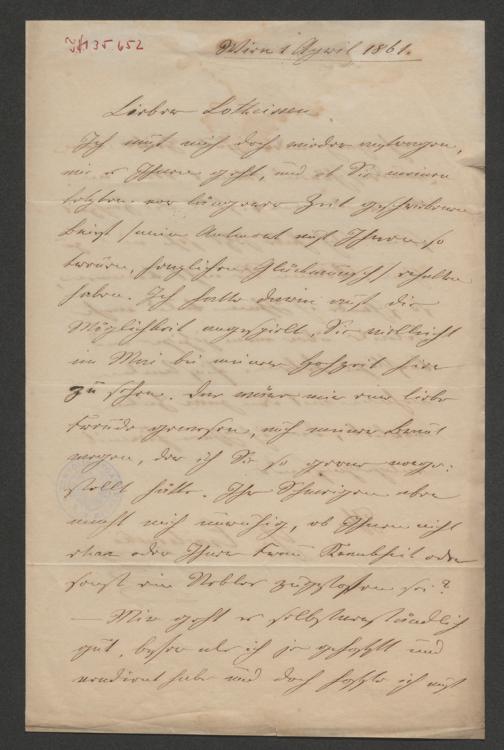 JN 135 652
Wien 1 April 1861.
Lieber Lotheissen
Ich muß mich doch wieder
wie es Ihnen geht, und ob Sie meinen
letzten vor längerer Zeit geschriebenen
Brief (meine Antwort auf Ihren so
treuen, herzlichen Glückwunsch) erhalten
haben. Ich hatte darin auf die
Möglichkeit angespielt, Sie vielleicht
im Mai bei meiner Hochzeit hier
zu sehen. Das wäre mir eine liebe
Freude gewesen, auch meiner Braut
wegen, der ich Sie so gerne vorge-
stellt hätte. Ihr Schweigen aber
macht mich unruhig, ob Ihnen nicht
etwa oder Ihrer Frau Krankheit oder
sonst ein Uebles zugestoßen sei?
— Mir geht es selbstverständlich
gut, besser als ich je gehofft und
verdient habe und doch hoffe ich auf